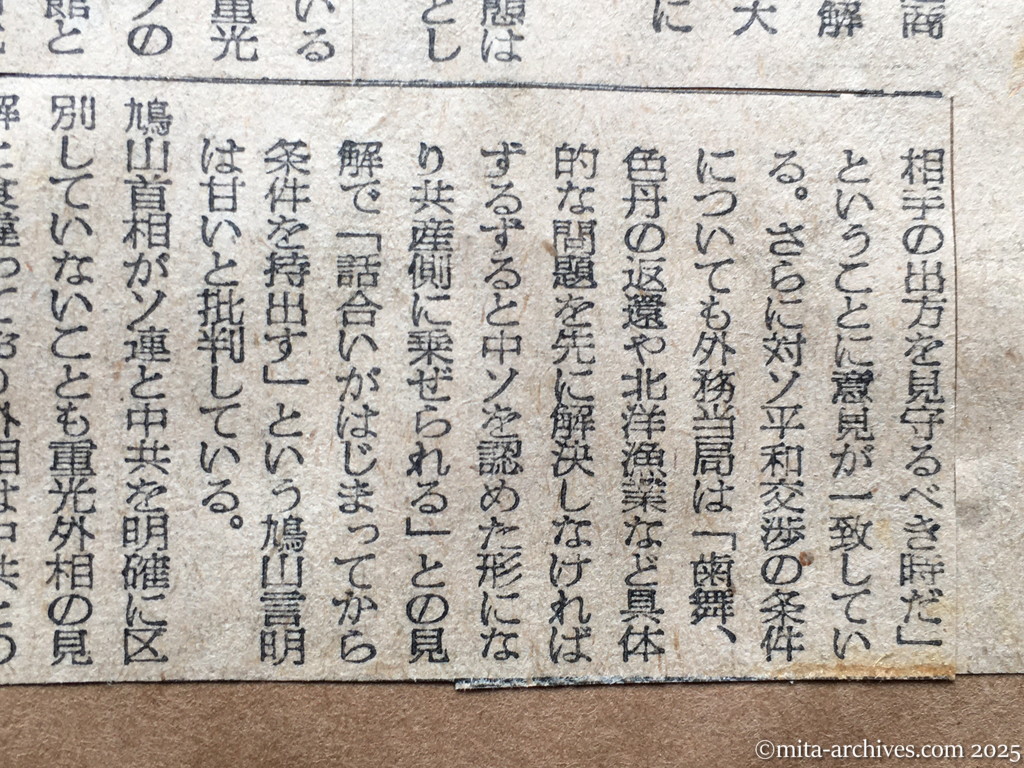 商
解
大
に
態は
とし
いる
重光
ノの
館と
相手の出方を見守るべき時だ」
ということに意見が一致してい
る。さらに対ソ平和交渉の条件
についても外務当局は「歯舞、
色丹の返還や北洋漁業など具体
的な問題を先に解決しなければ
ずるずると中ソを認めた形にな
り共産側に乗ぜられる」との見
解で「話合いがはじまってから
条件を持出す」という鳩山言明
は甘いと批判している。
鳩山首相がソ連と中共を明確に区
別していないことも重光外相の見
解と食違っており外相は中共との
©mita-archives.com 2025